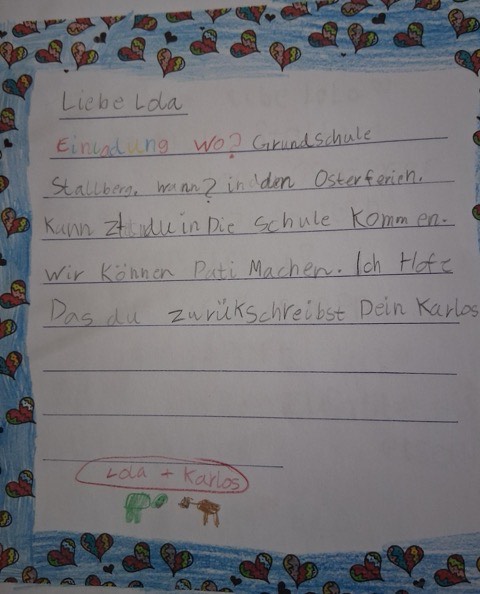 Liebe Lola
Einladung wo? Grundschule
Stallberg. wann? in den Osterferien.
Kann du in Die Schule Kommen.
wir Können Pati Machen. Ich Hofe
Das du zurükschreibst Dein Karlos
Lola + Karlos